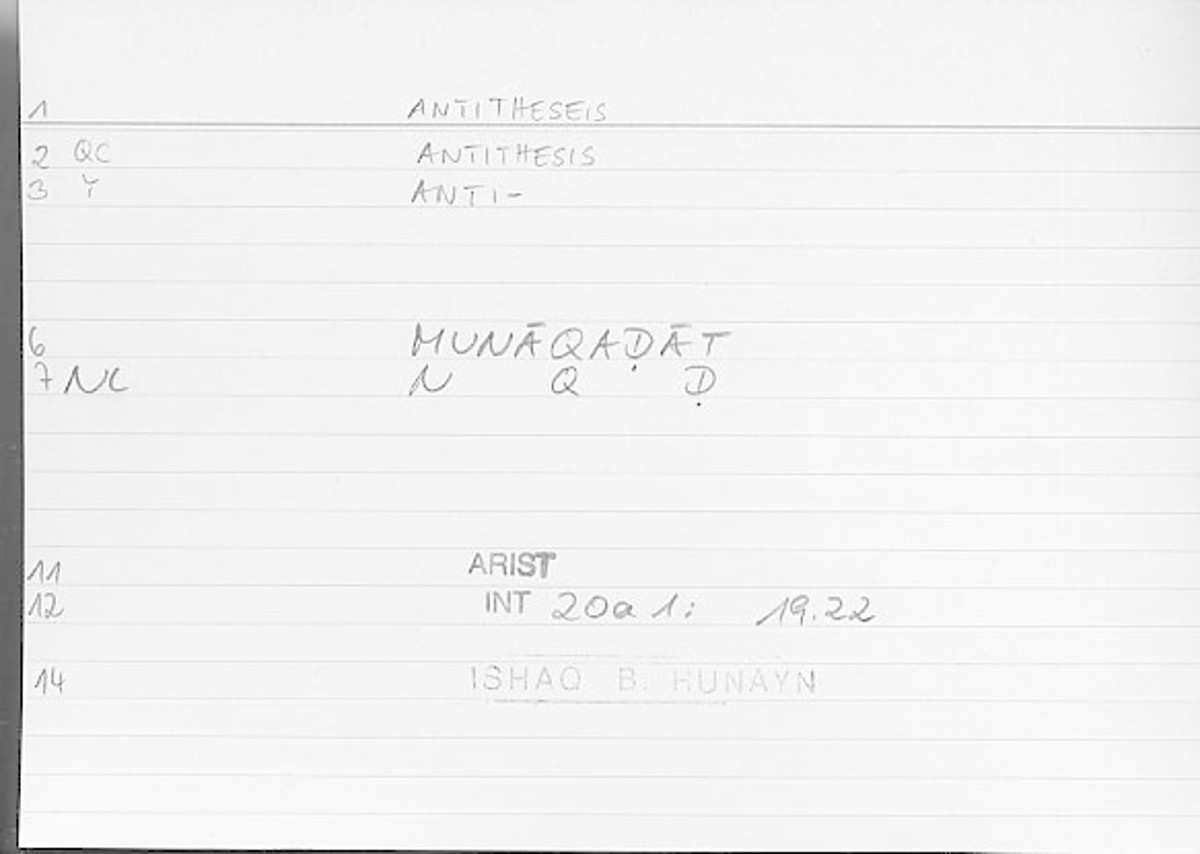 1 ANTITHESEIS
2 QC ANTITHESIS
3 Y ANTI-
6 MUNĀQAḌĀT
7 NC N Q Ḍ
11 ARIST
12 INT 20a 1; 19.22
14 ISHAQ B. HUNAYN